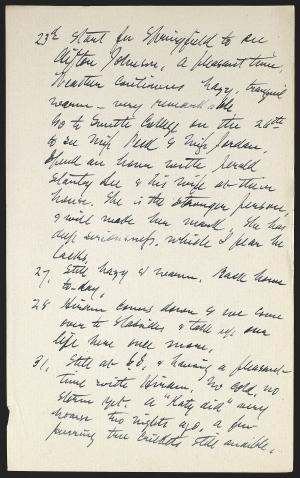 23rd Start for Springfield to see
Clifton Johnson, a pleasant time.
Weather continues hazy, tranquil
warm — very remarkable
Go to Smith College on the 26th
to see Miss Peck & Miss Jordan,
Spend an hour with Gerald
Stanley Lee & his wife at their
house. She is the stronger person,
& will make her mark. She has
deep seriousness, which I fear he
lacks.
27. Still hazy & warm. Back home
to-day.
28 Hiram comes down & we come
over to Slabsides & take up our
life here once more.
31. Still at S.S. & having a pleasant
time with Hiram. No cold, no
storm yet. A "Katy did" very
hoarse two nights ago, a few
purring tree crickets still audible.